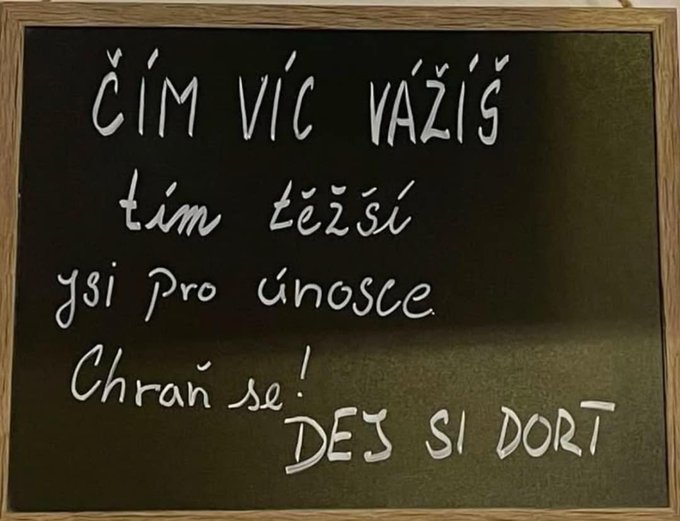 ČÍM VÍC VÁŽÍŠ
tím těžší
jsi pro únosce
Chraň se!
DEJ SI DORT